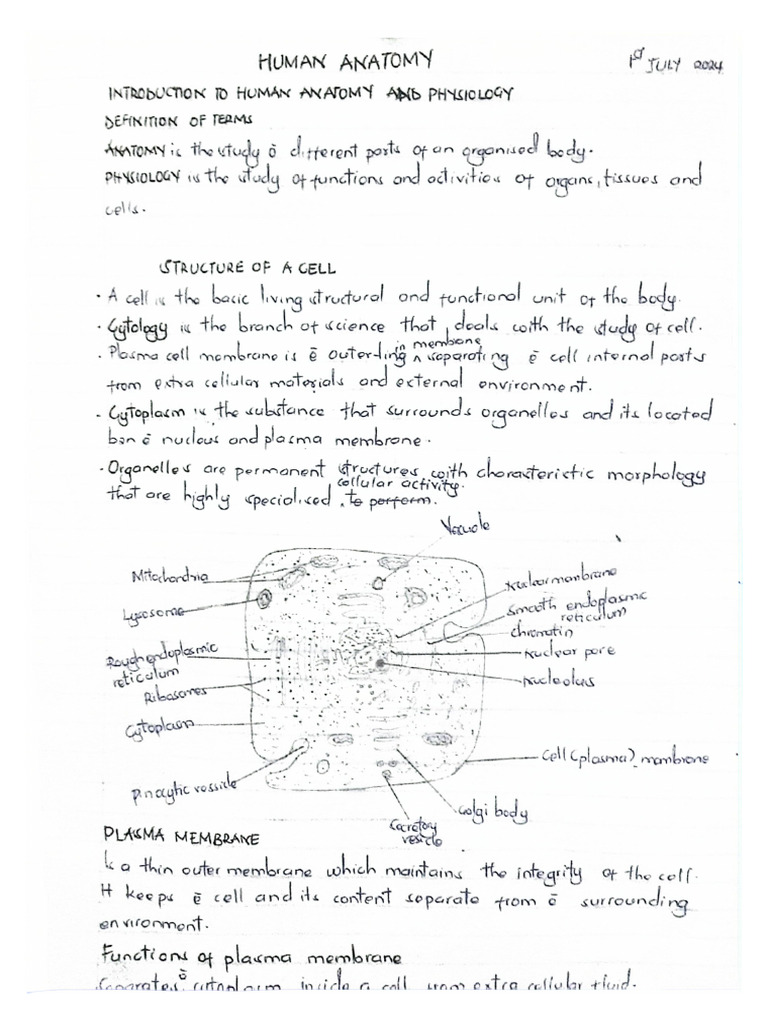 HUMAN ANATOMY
1st JULY 2024
INTRODUCTION TO HUMAN ANATOMY AND PHYSIOLOGY
DEFINITION OF TERMS
ANATOMY is the study ō different parts of an organised body.
PHYSIOLOGY is the study of functions and activities of organs, tissues and
cells.
STRUCTURE OF A CELL
· A cell is the basic living structural and functional unit of the body.
· Cytology is the branch of science that deals with the study of cell.
· Plasma cell membrane is ē outer-lin in g membrane separating ē cell internal parts
from extra cellular materials and external environment.
· Cytoplasm is the substance that surrounds organelles and its located
btn ē nucleus and plasma membrane.
· Organelles are permanent structures with characteristic morphology
that are highly specialised cellular activity. to perform.
Vacuole
Mitochondria
Nuclear membrane
Lysosome
Smooth endoplasmic
reticulum
chromatin
Rough endoplasmic
reticulum
Nuclear pore
Ribosomes
Nucleolus
Cytoplasm
Cell (plasma) membrane
Pinocytic vessicle
Golgi body
Secretory
vesicle
PLASMA MEMBRANE
Is a thin outer membrane which maintains the integrity of the cell.
It keeps ē cell and its content separate from ē surrounding
environment.
Functions of plasma membrane
Separates ē cytoplasm inside a cell from extra cellular fluid.